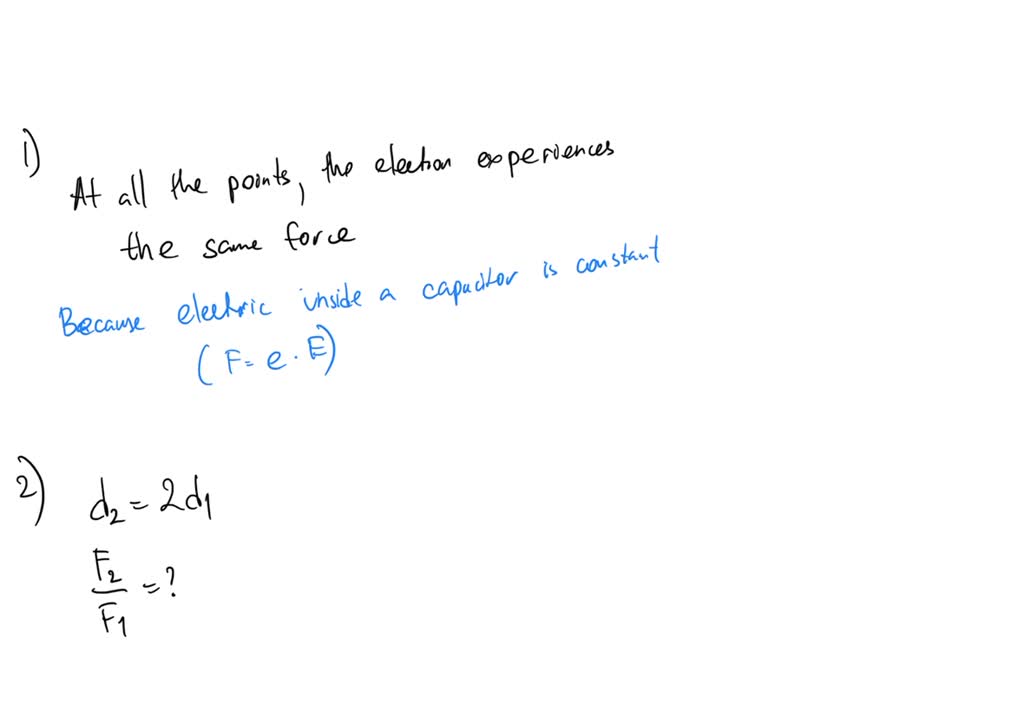 1)
At all the points, the electron experiences
the same force
Because electric inside a capacitor is constant
(F = e . E)
2) d₂ = 2d₁
F₂/F₁ = ?